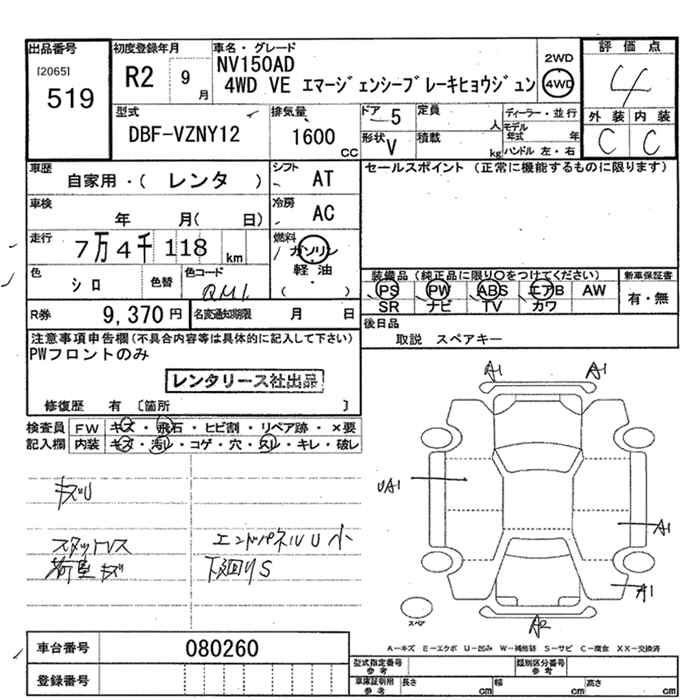 出品番号
[2065]
519
初度登録年月
R2 9月
車名・グレード
NV150AD
4WD VE エマージェンシーブレーキヒョウジュン
2WD
4WD
評価点
4
外装 内装
C C
型式
DBF-VZNY12
排気量
1600 CC
ドア 5
定員 人
形状 V
積載 kg
ディーラー・並行
モデル年式 年
ハンドル 左・右
車歴
自家用・( レンタ )
シフト
AT
セールスポイント (正常に機能するものに限ります)
車検
年 月( 日)
冷房
AC
走行
7万4千118 km
燃料
ガソリン
軽油
・
( )
色
シロ
色替
色コード
QM1
装備品(純正品に限り〇をつけてください)
PS PW ABS エアB AW
SR ナビ TV カワ
新車保証書
有・無
R券
9,370円
名変通知期限 月 日
後日品
取説 スペアキー
注意事項申告欄(不具合内容等は具体的に記入して下さい)
PWフロントのみ
レンタリース社出品
修復歴 有 〔箇所 〕
検査員記入欄
FW キズ・飛石・ヒビ割・リペア跡・×要
内装 キズ・汚レ・コゲ・穴・スレ・キレ・破レ
キズU
スタットレス
荷室キズ
エンドパネルU小
下廻りS
A1 A1
UA1
A1
A1
A2
スペア
A-キズ E-エクボ U-凹み W-補修跡 S-サビ C-腐食 XX-交換済
車台番号
080260
登録番号
型式指定番号 参考
類別区分番号 参考
車庫証明用 参考
長さ cm
幅 cm
高さ cm